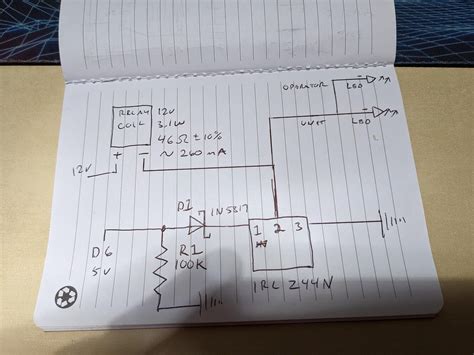 OPORATOR LED
RELAY 12V
COIL 3.1W
46Ω ± 10%
~ 260 mA
UNIT LED
+ -
12V
D1
1N5817
D6
5V
R1
100K
1 2 3
IRL Z44N